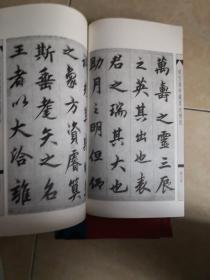 萬壽之靈三辰
之英其出也表
君之瑞其大也
助月之明但仰
之象方資睿算
斯垂耄之名
王者以大誰